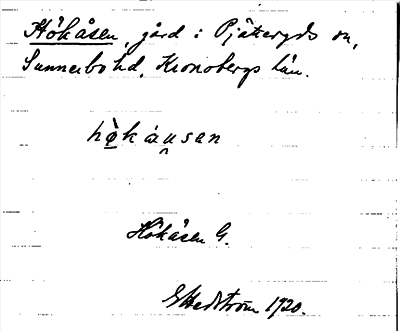 Hökåsen, gård i Pjätteryds sn,
Sunnerbo hd, Kronobergs län.
hø̀kåu̯sen
Hökåsen G.
G Hedström 1920.